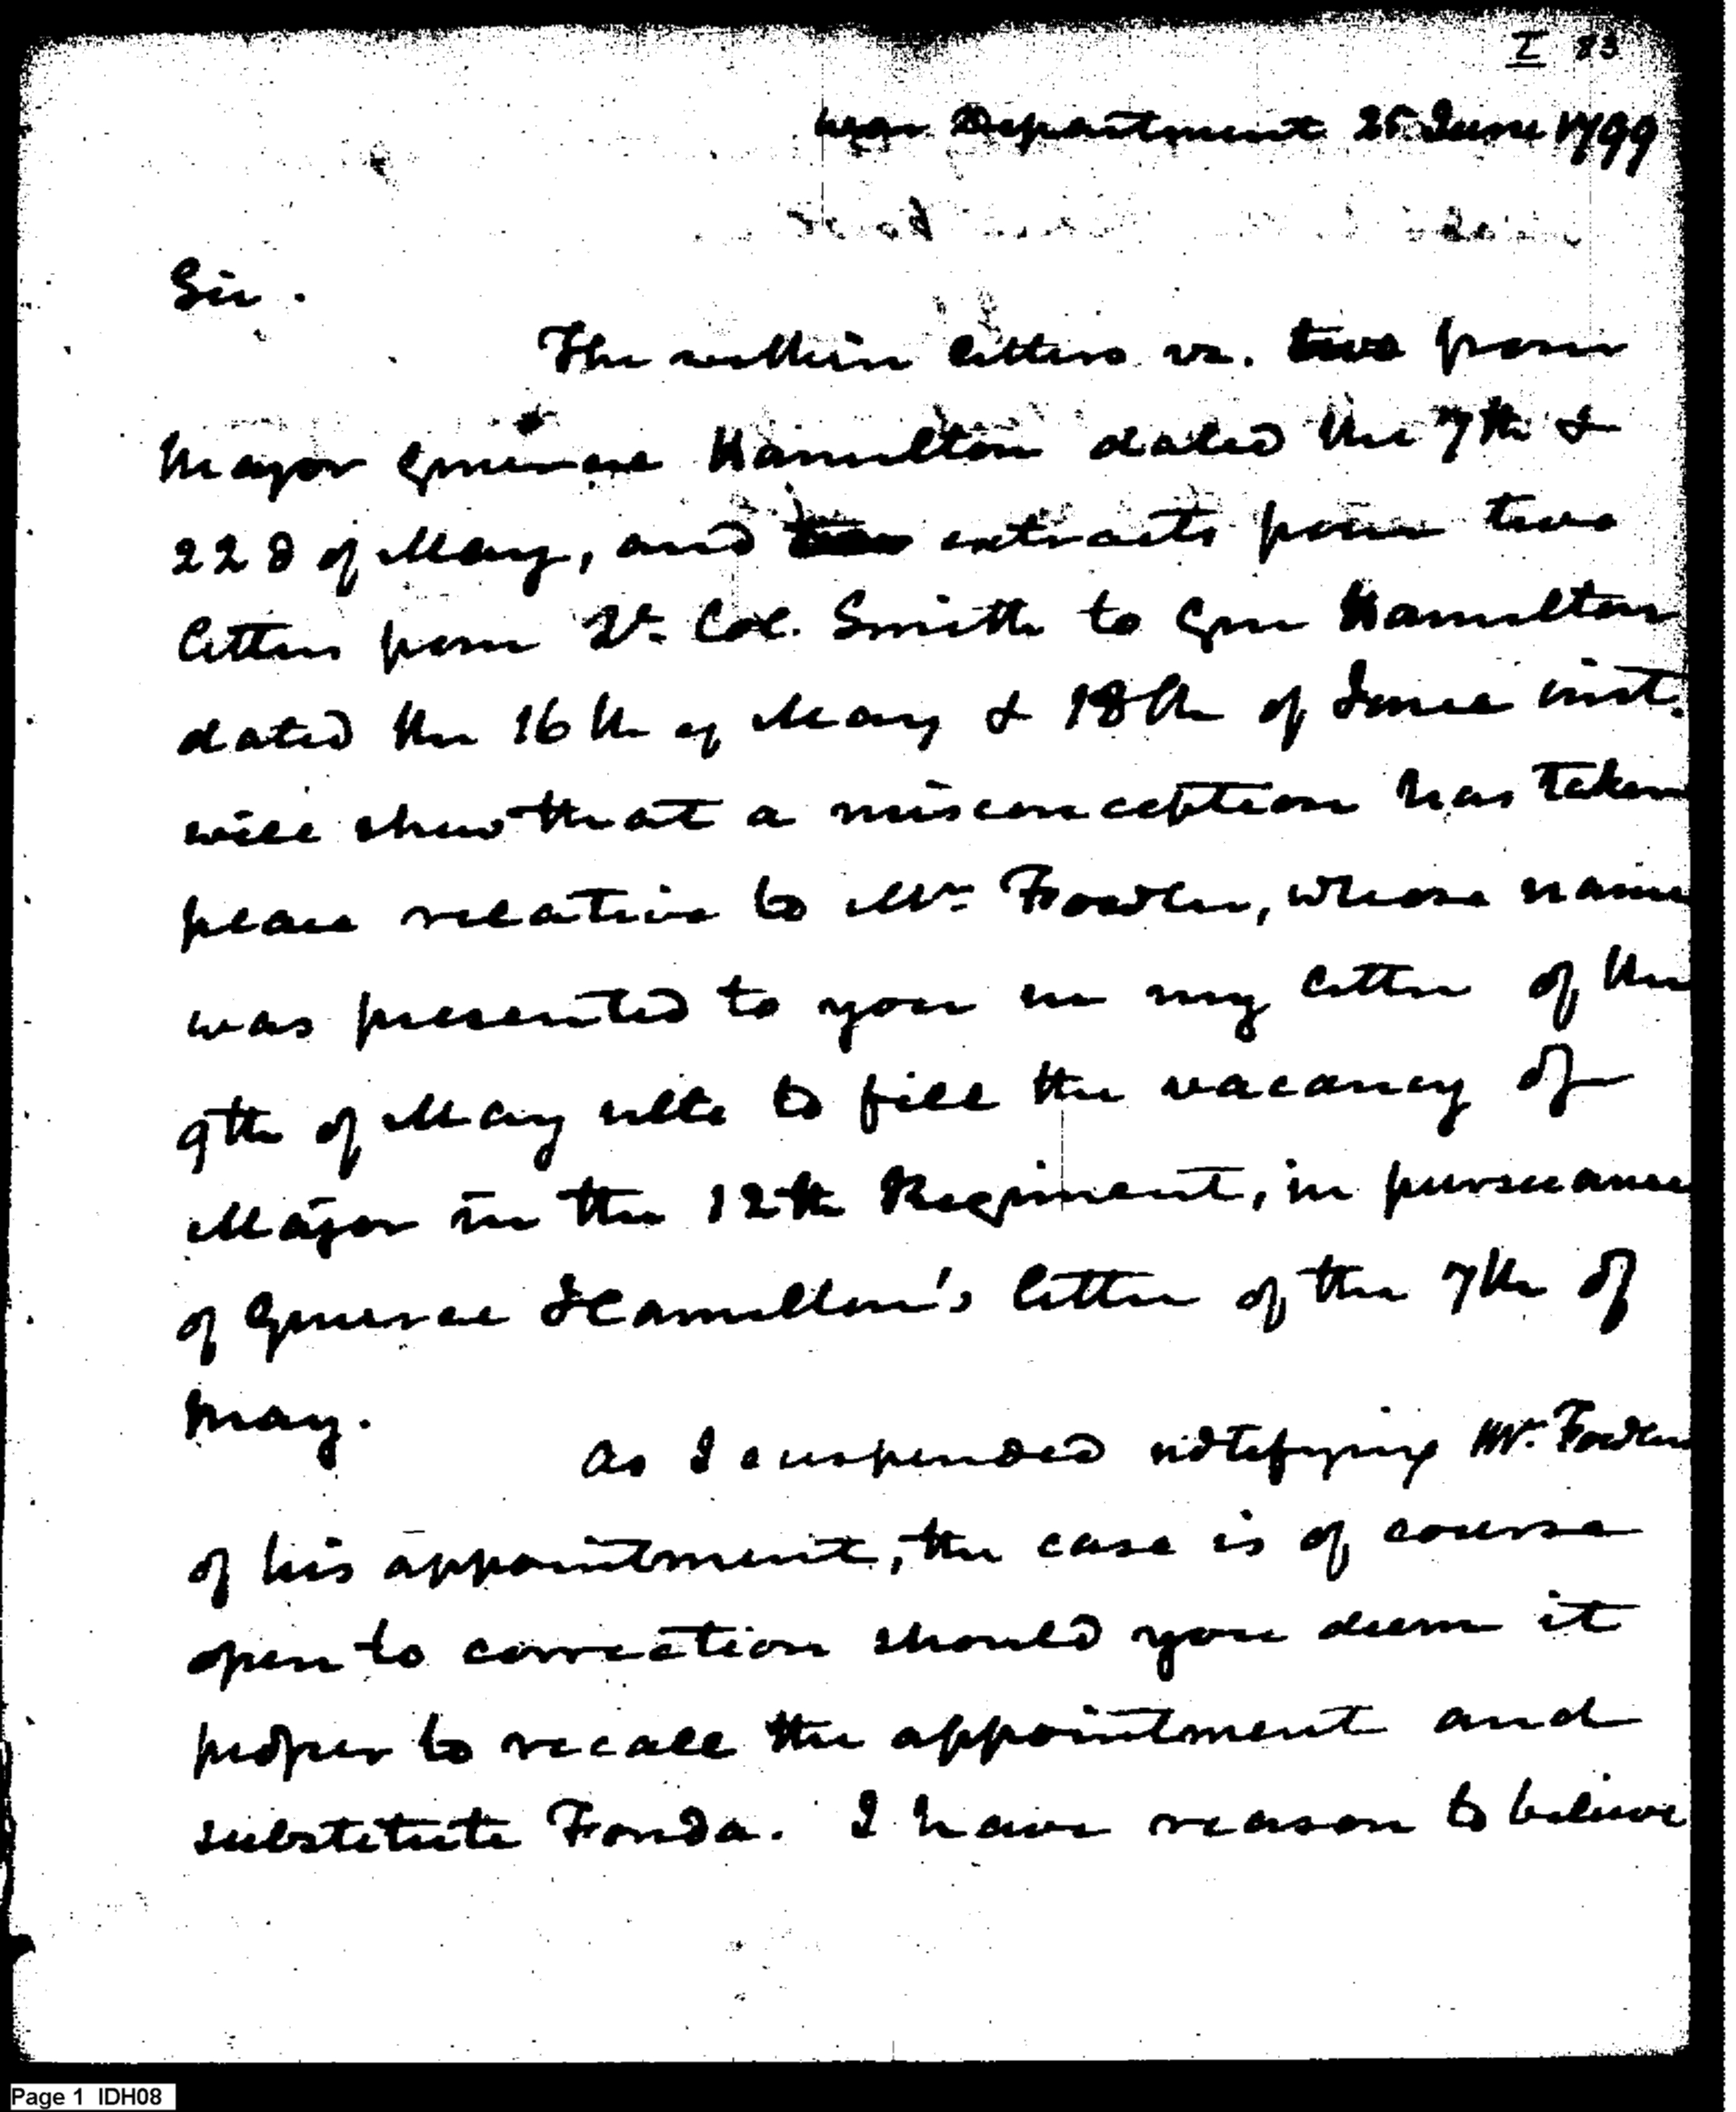 I 83
War Department 25 June 1799
Sir.
The within letters vz. two from
Major General Hamilton dated the 7th &
22d of May, and extracts from two
letters from Lt. Col. Smith to Gen Hamilton
dated the 16th of May & 18th of June inst.
will shew that a misconception has taken
place relative to Mr. Fowler, whose name
was presented to you in my letter of the
9th of May ulto to fill the vacancy of
Major in the 12th Regiment, in pursuance
of General Hamilton's letter of the 7th of
May.
As I suspended notifying Mr. Fowler
of his appointment, the case is of course
open to correction should you deem it
proper to recall the appointment and
substitute Fonda. I have reason to believe
Page 1 IDH08